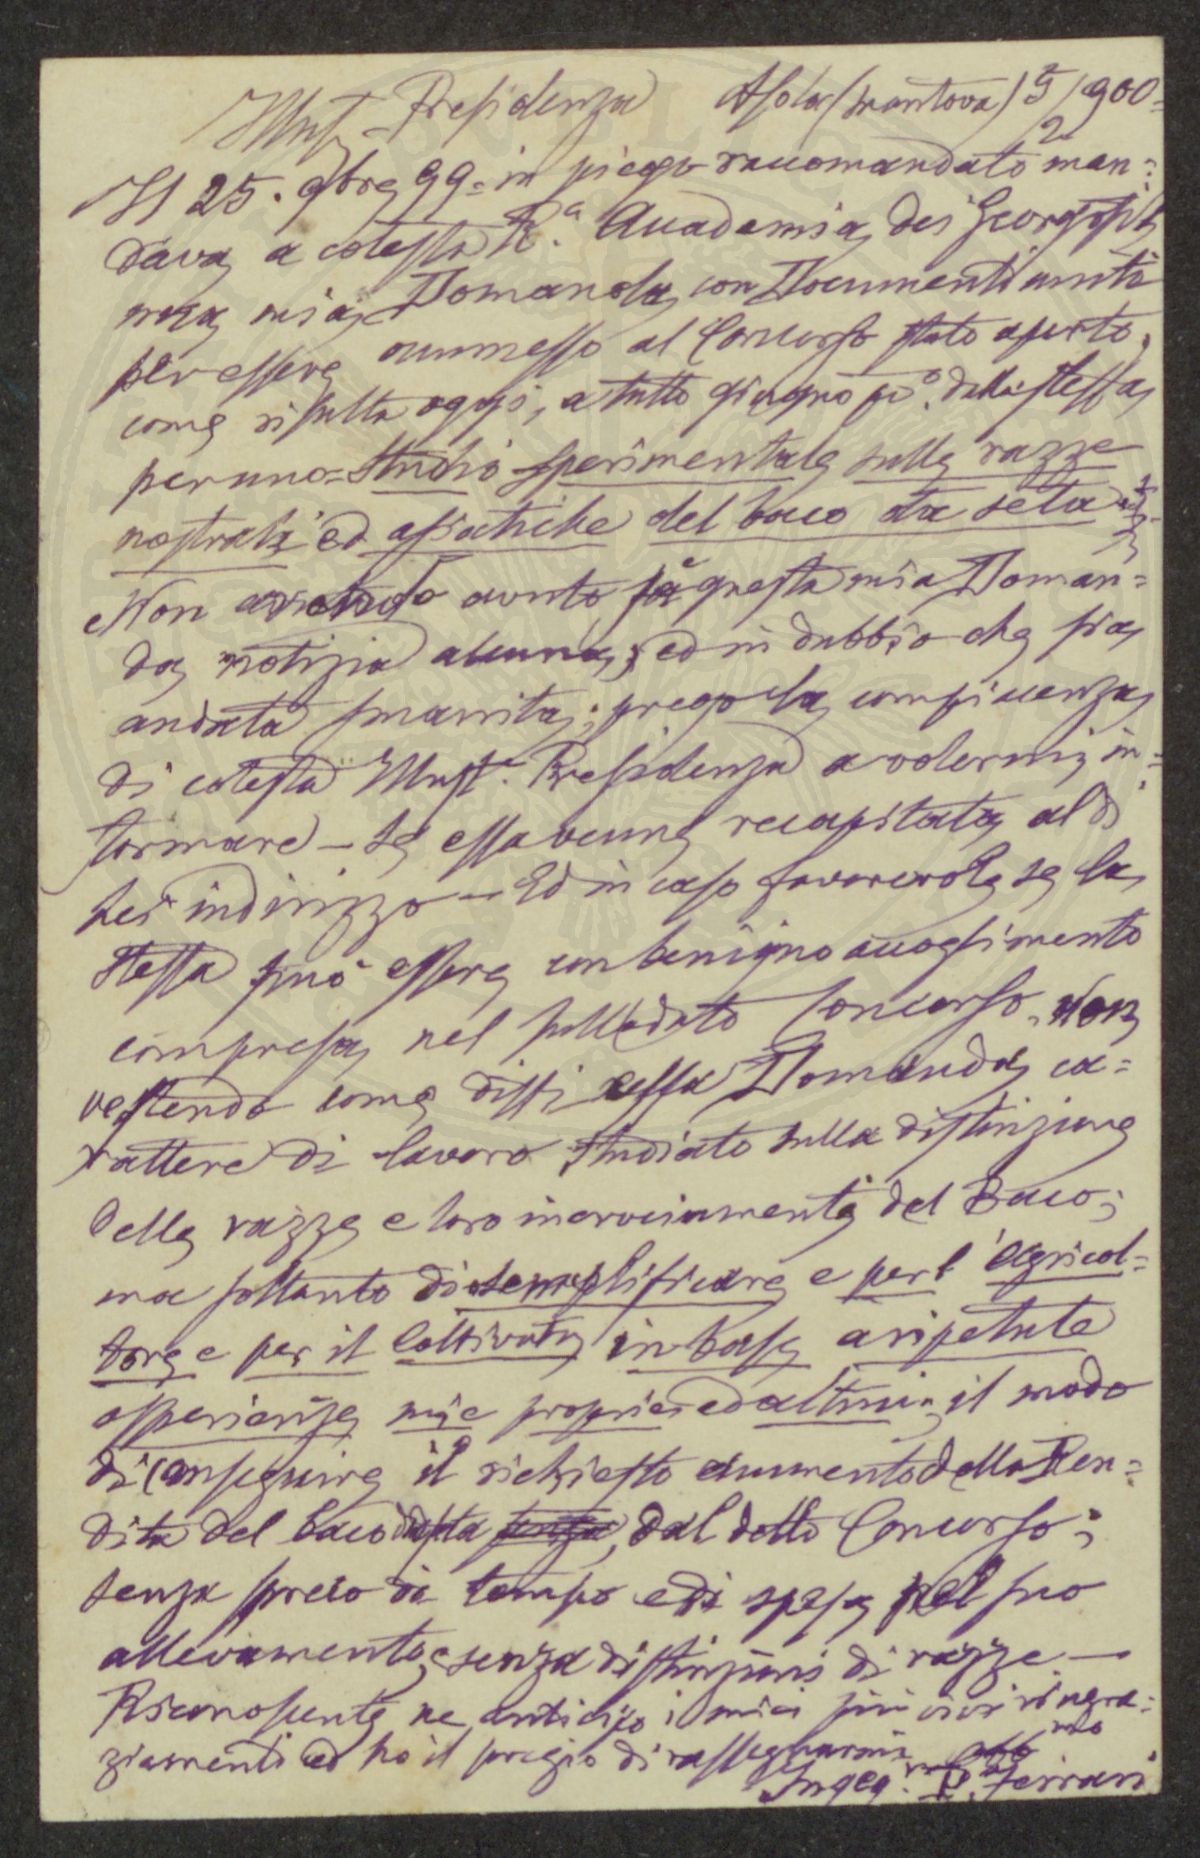 Illust. Presidenza Asola (Mantova) 5/2 900=
Il 25. 9bre 99= in piego raccomandato man=
dava a cotesta R.a Accademia dei Georgofili
una mia Domanda con Documenti uniti
per essere ammesso al Concorso stato aperto,
come risulta oggi, a tutto giugno po. dalla stessa,
per uno= Studio sperimentale sulle razze
nostrali ed asiatiche del baco da seta
Non avendo avuto di questa mia Doman=
da notizia alcuna; ed in dubbio che sia
andata smarrita; prego la compiacenza
di cotesta Illust. Presidenza a volermi in=
formare – se essa venne recapitata al di
Lei indirizzo – Ed in caso favorevole se la
stessa può essere con benigno accoglimento
compresa nel sullodato Concorso. Non
vestendo come dissi essa Domanda ca=
rattere di lavoro studiato sulla distinzione
delle razze e loro incrociamenti del Baco;
ma soltanto di semplificare e per l'agricol=
tore e per il Coltivatore in base a ripetute
esperienze mie proprie ed altrui, il modo
di conseguire il richiesto aumento della Ren=
dita del baco da seta, dal detto Concorso;
senza spreco di tempo e di spesa pel suo
allevamento, e senza distinzioni di razze –
Riconoscente ne anticipo i miei più vivi ringra=
ziamenti ed ho il pregio di rassegnarmi
Ingeg. P. Ferrari